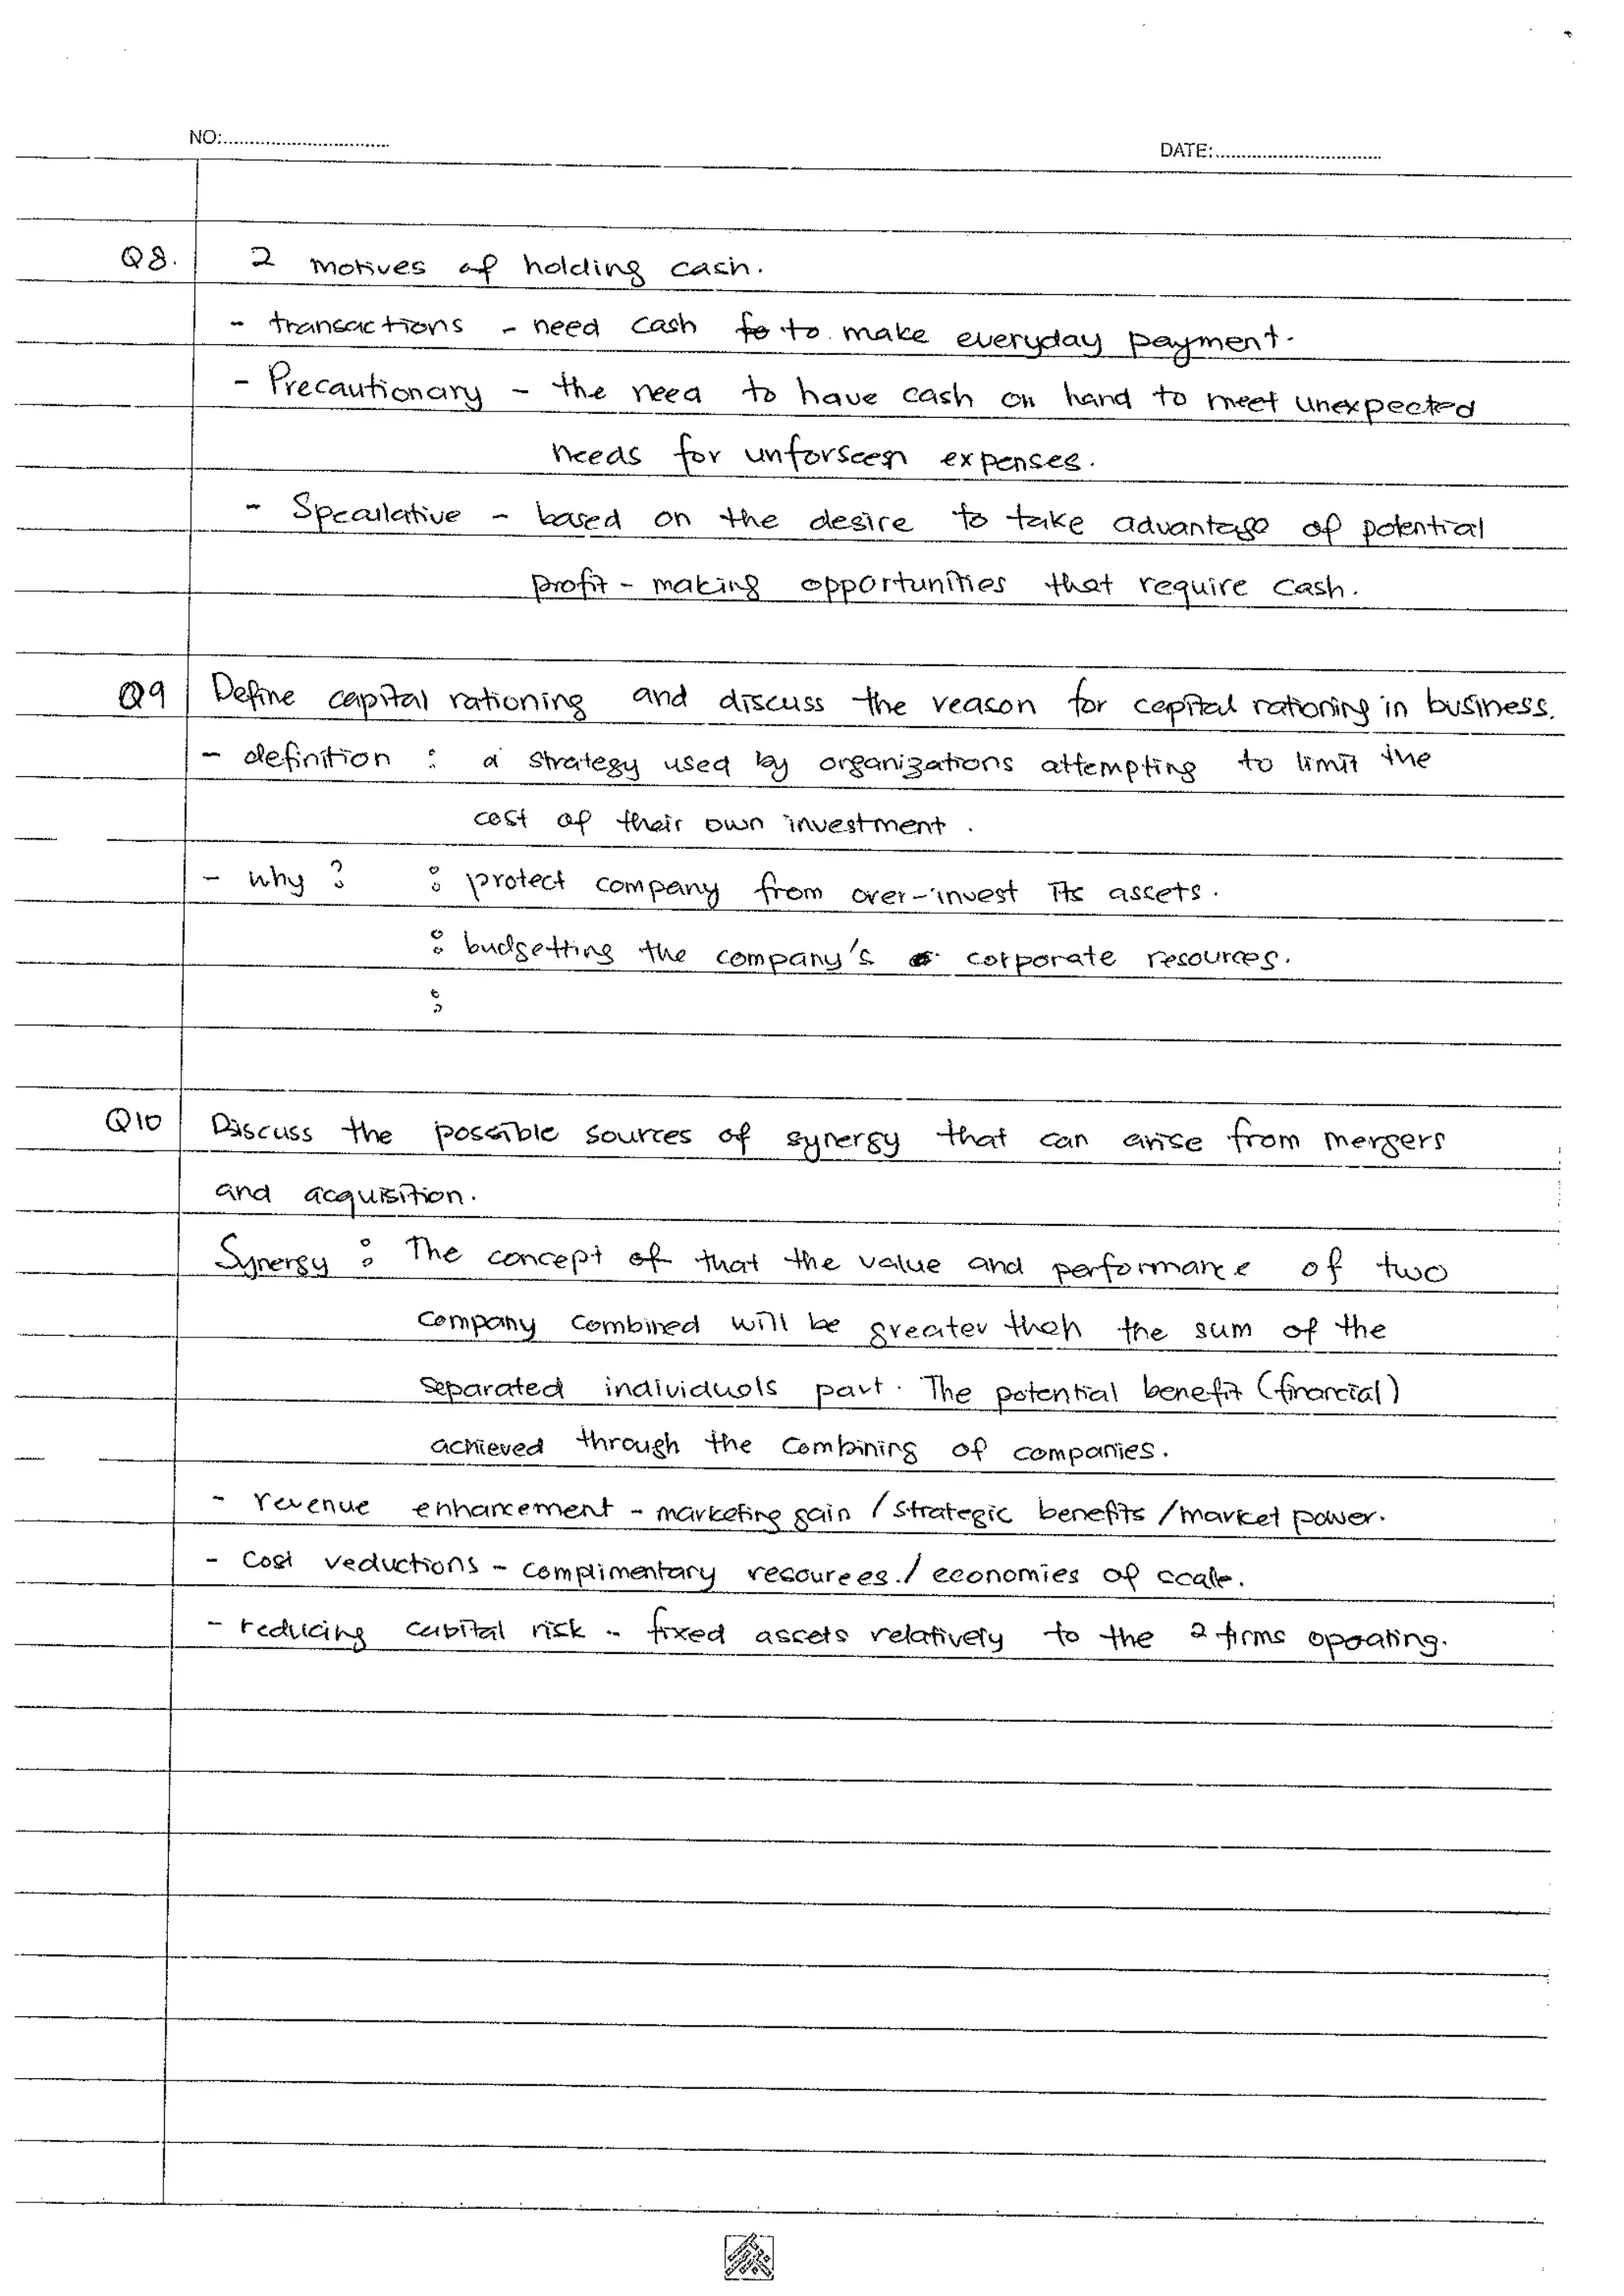 NO:..............................
DATE:..............................
Q8. 2 motives of holding cash.
- transactions - need cash fo to make everyday payment.
- Precautionary - the need to have cash on hand to meet unexpected
needs for unforseen expenses.
- Speculative - based on the desire to take advantage of potential
profit - making opportunities that require cash.
Q9 Define capital rationing and discuss the reason for capital rationing in business.
- definition : a strategy used by organizations attempting to limit the
cost of their own investment.
- why? : protect company from over-invest its assets.
: budgetting the company's corporate resources.
:
Q10 Discuss the possible sources of synergy that can arise from mergers
and acquisition.
Synergy : The concept of that the value and performance of two
company combined will be greater than the sum of the
separated individuals part. The potential benefit (financial)
achieved through the combining of companies.
- revenue enhancement - marketing gain / strategic benefits / market power.
- Cost reductions - complimentary resources. / economies of scale.
- reducing capital risk - fixed assets relatively to the 2 firms operating.